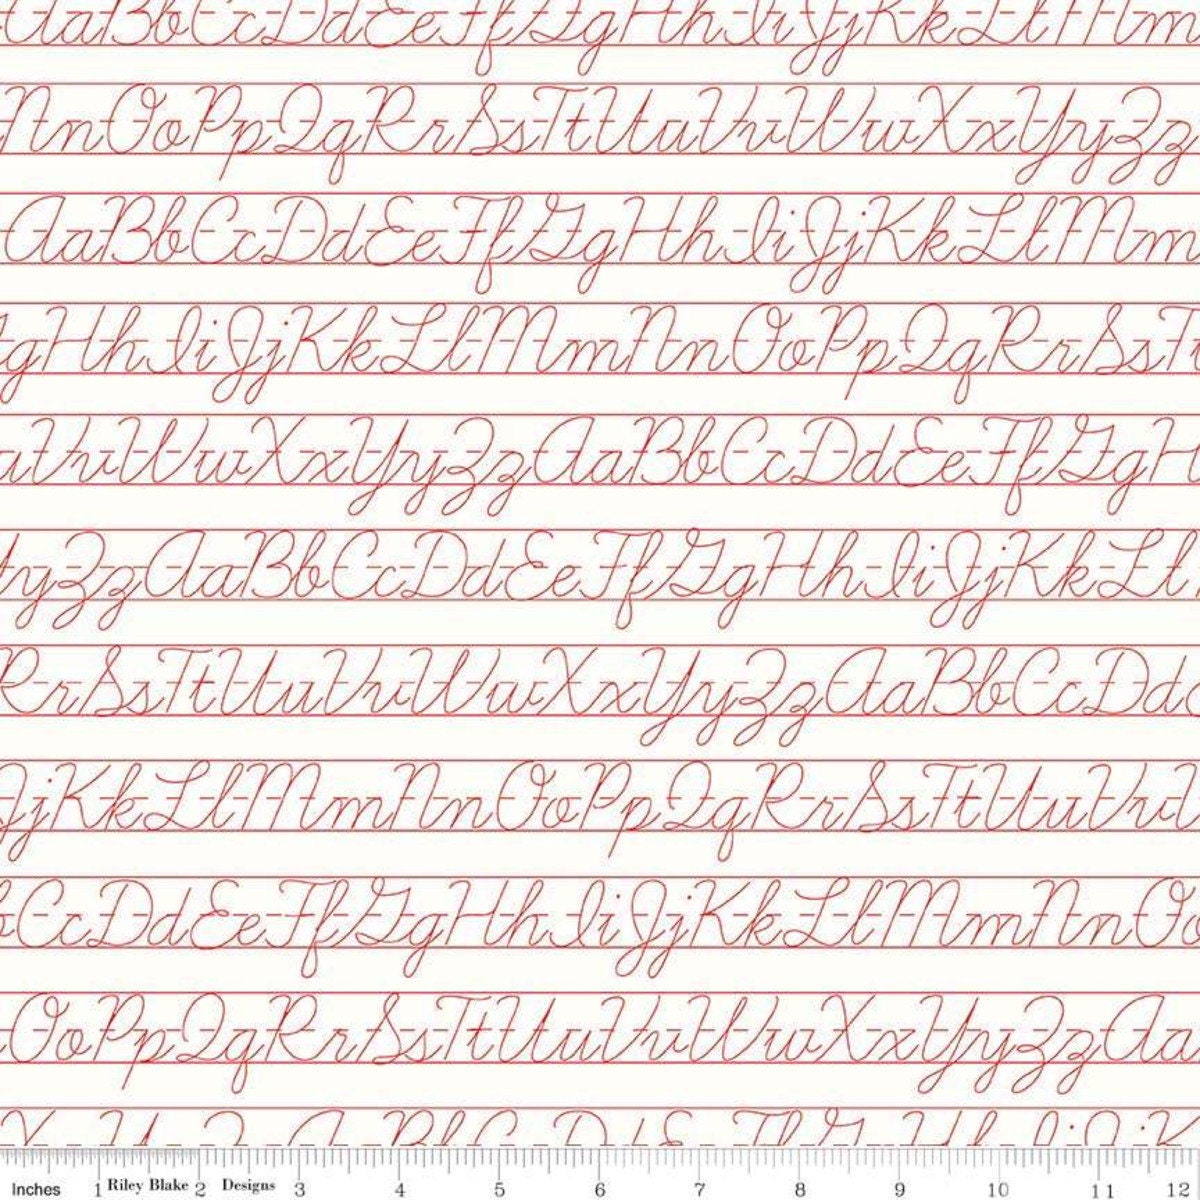 AaBbCcDdEeFfGgHhIiJjKkLlMm
NnOoPpQqRrSsTtUuVvWwXxYyZz
AaBbCcDdEeFfGgHhIiJjKkLlMm
gHhIiJjKkLlMmNnOoPpQqRrSsTt
uVvWwXxYyZzAaBbCcDdEeFfGgH
YyZzAaBbCcDdEeFfGgHhIiJjKkLl
RrSsTtUuVvWwXxYyZzAaBbCcDd
JjKkLlMmNnOoPpQqRrSsTtUuVv
bCcDdEeFfGgHhIiJjKkLlMmNnOo
OoPpQqRrSsTtUuVvWwXxYyZzAa
X Y Z A Bb C Dd E Ff G Hh Ii J K
Inches 1 Riley Blake 2 Designs 3 4 5 6 7 8 9 10 11 12